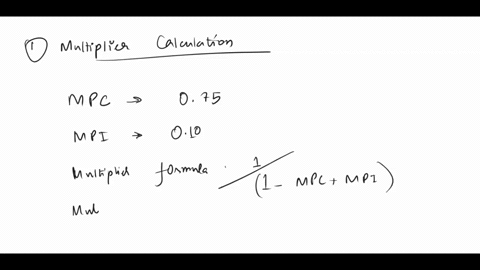 ① Multiplier Calculation
MPC → 0.75
MPI → 0.10
Multiplier formula. 1/(1 - MPC + MPI)
Mul